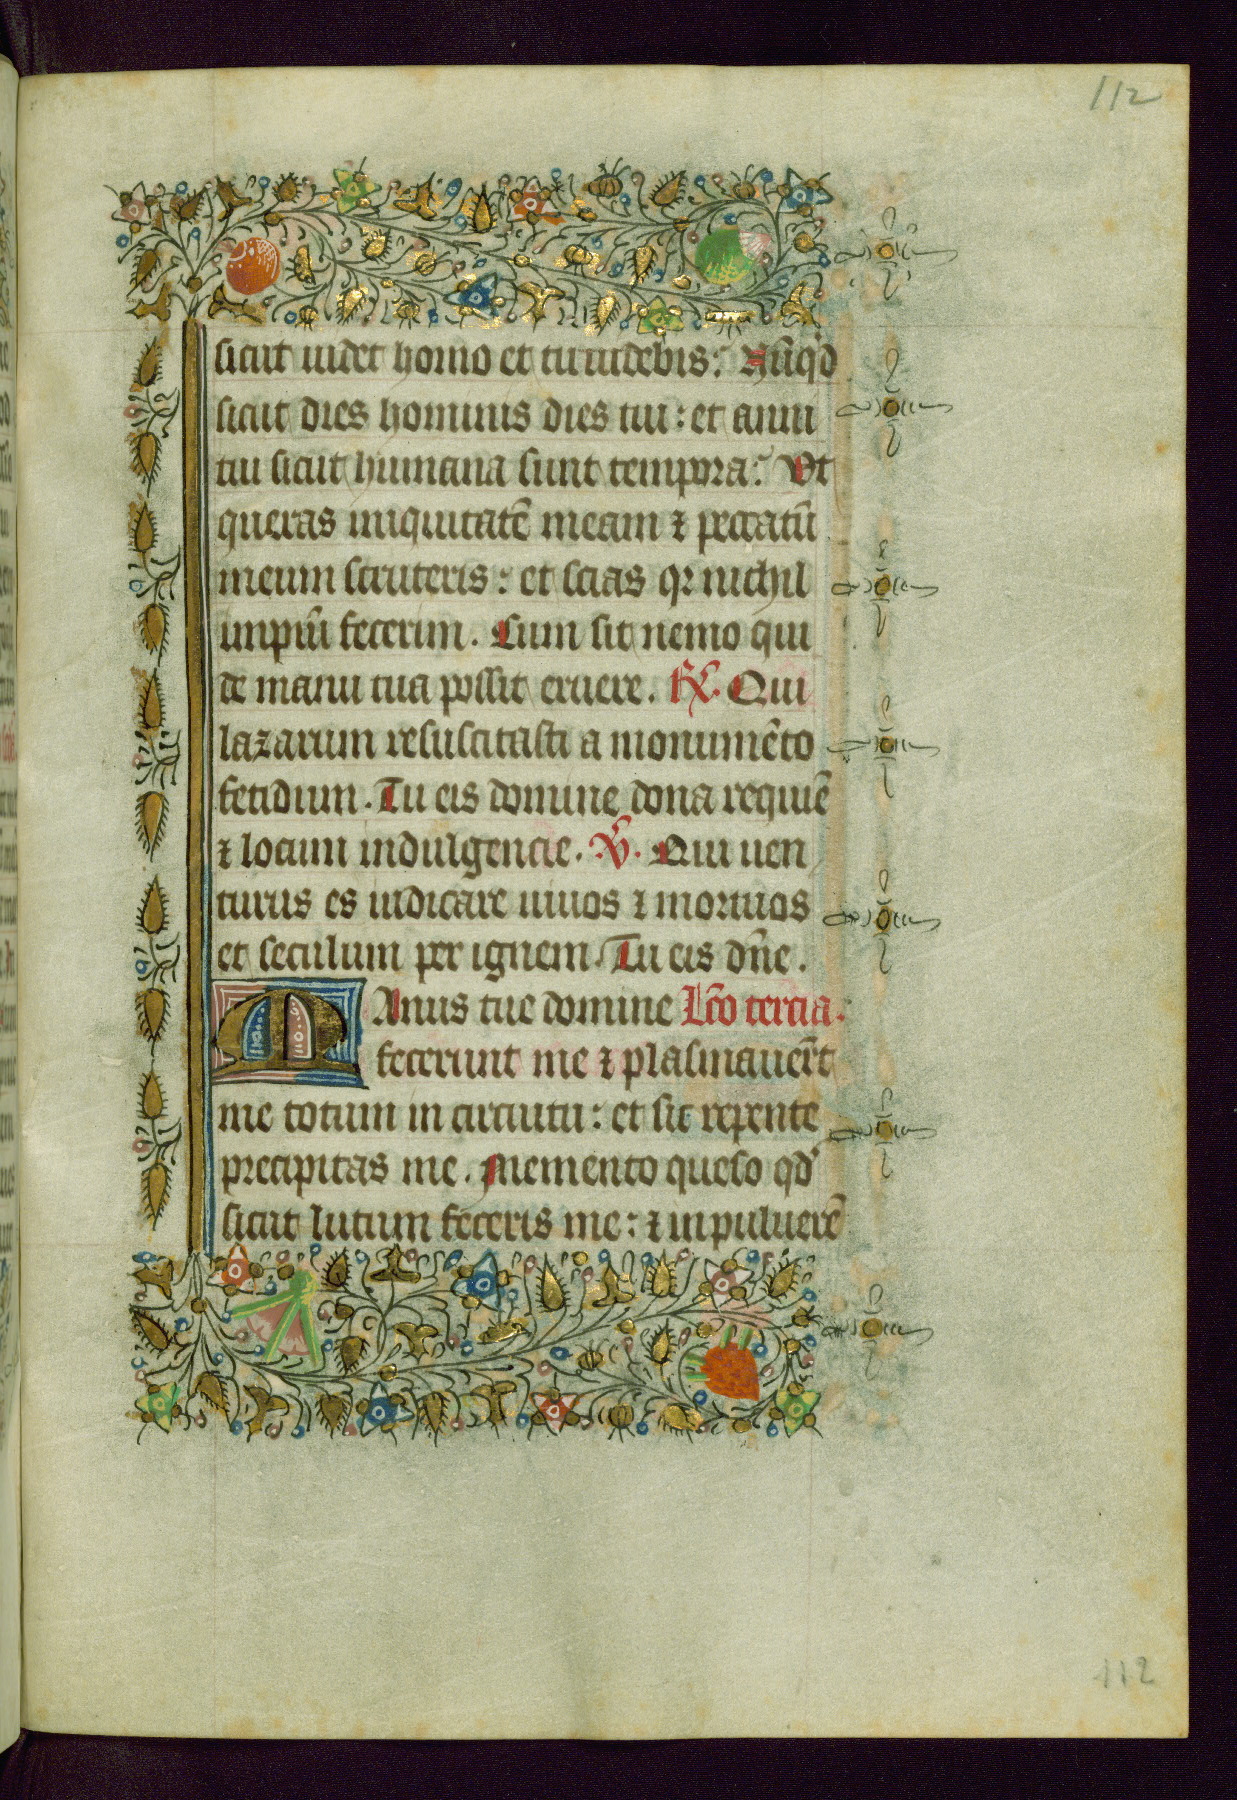 112
sicut uidet homo et tu uidebis: Nūqͥd
sicut dies hominis dies tui: et anni
tui sicut humana sunt tempora: Ut
queras iniquitatē meam ⁊ peccatū
meum scruteris: et scias qꝛ nichil
impiū fecerim. Cum sit nemo qui
de manu tua possit eruere. ℟. Qui
lazarum resuscitasti a monumēto
fetidum. Tu eis domine dona requiē
⁊ locum indulgencie. ℣. Qui uen
turus es iudicare uiuos ⁊ mortuos
et seculum per ignem. Tu eis dn̄e.
MAnus tue domine Lc̄o tercia.
fecerunt me ⁊ plasmauer̄t
me totum in circuitu: et sic repente
precipitas me. Memento queso qd'
sicut lutum feceris me: ⁊ in puluerē
112